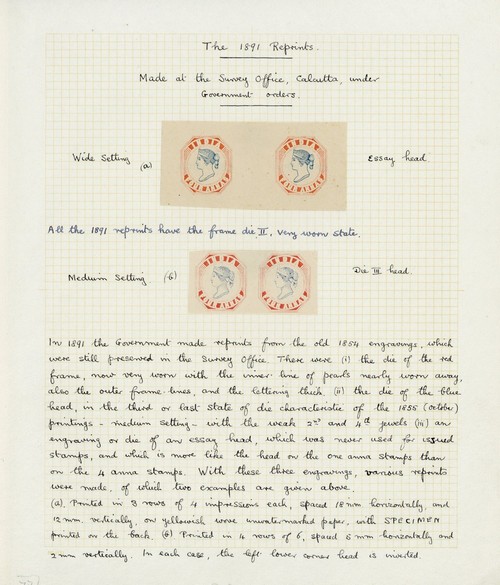 The 1891 Reprints.
Made at the Survey Office, Calcutta, under
Government orders.
Wide Setting (a)
Essay head
INDIA
FOUR ANNAS
INDIA
FOUR ANNAS
All the 1891 reprints have the frame die II, very worn state.
Medium Setting (b)
Die III head.
INDIA
FOUR ANNAS
INDIA
FOUR ANNAS
In 1891 the Government made reprints from the old 1854 engravings, which
were still preserved in the Survey Office. There were (i) the die of the red
frame, now very worn with the inner line of pearls nearly worn away,
also the outer frame-lines, and the lettering thick. (ii) the die of the blue
head, in the third or last state of die characteristic of the 1855 (October)
printings - medium setting - with the weak 2nd and 4th jewels (iii) an
engraving or die of an essay head, which was never used for issued
stamps, and which is more like the head on the one anna stamps than
on the 4 anna stamps. With these three engravings, various reprints
were made, of which two examples are given above.
(a). Printed in 3 rows of 4 impressions each, spaced 18 mm horizontally, and
12 mm. vertically, on yellowish wove unwatermarked paper, with SPECIMEN
printed on the back. (b) Printed in 4 rows of 6, spaced 5 mm horizontally and
2 mm vertically. In each case, the left lower corner head is inverted.